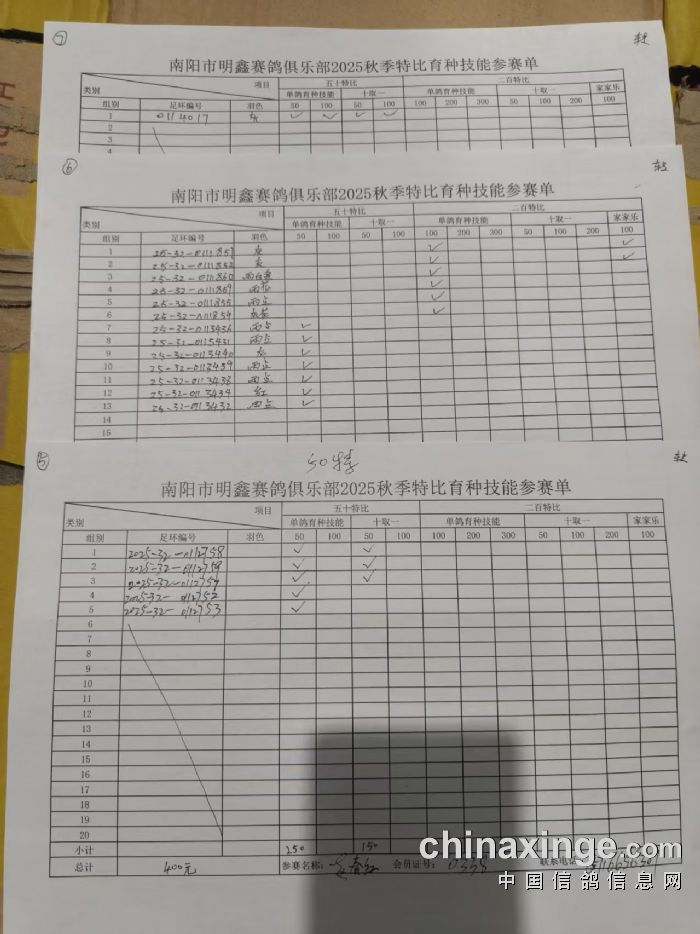 7
南阳市明鑫赛鸽俱乐部2025秋季特比育种技能参赛单
项目 五十特比 二百特比
类别 单鸽育种技能 十取一 单鸽育种技能 十取一 家家乐
组别 足环编号 羽色 50 100 50 100 100 200 300 50 100 200 100
1 0114017 灰 ✓ ✓ ✓ ✓
2
3
4
6
南阳市明鑫赛鸽俱乐部2025秋季特比育种技能参赛单
项目 五十特比 二百特比
类别 单鸽育种技能 十取一 单鸽育种技能 十取一 家家乐
组别 足环编号 羽色 50 100 50 100 100 200 300 50 100 200 100
1 灰 ✓ ✓
2 25-32-0111852 灰 ✓ ✓
3 25-32-0111860 ✓
4 ✓
5 25-32-0111855 雨点 ✓
6 ✓
7 25-32-0113436 雨点 ✓
8 雨点 ✓
9 灰 ✓
10 雨点 ✓
11 25-32-0113438 雨点 ✓
12 25-32-0113434 红 ✓
13 25-32-0113432 雨点 ✓
14
15
5
50特
南阳市明鑫赛鸽俱乐部2025秋季特比育种技能参赛单
项目 五十特比 二百特比
类别 单鸽育种技能 十取一 单鸽育种技能 十取一 家家乐
组别 足环编号 羽色 50 100 50 100 100 200 300 50 100 200 100
1 2025-32-0112758 ✓ ✓
2 2025-32-0112759 ✓ ✓
3 ✓ ✓
4 2025-32-0112752 ✓
5 2025-32-0112753 ✓
6
7
8
9
10
11
12
13
14
15
16
17
18
19
20
小计 250 150
总计 400元 参赛名称: 会员证号: 联系电话
chinaxinge.com
中国信鸽信息网